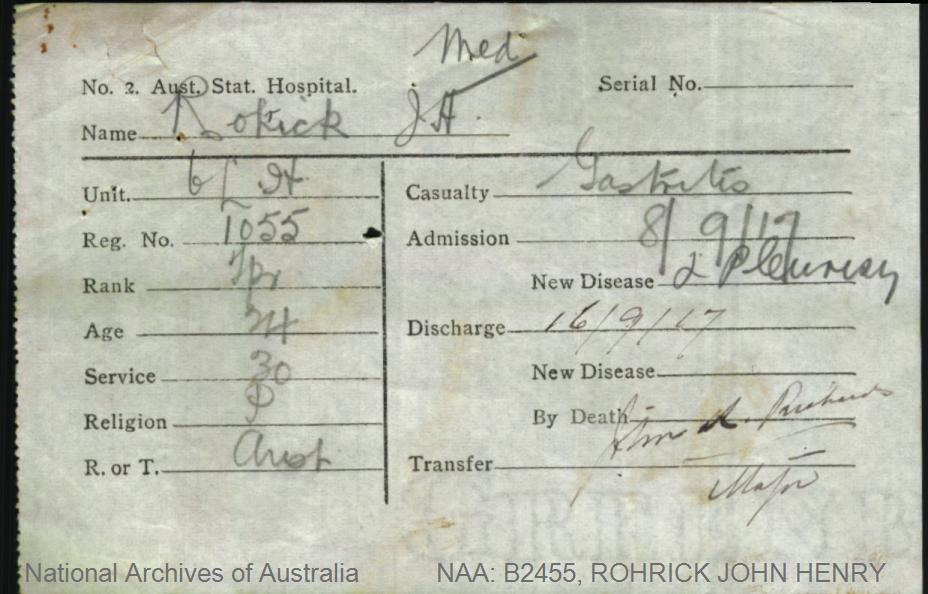 Med
No. 2. Aust. Stat. Hospital.
Serial No.
Name Rokick J H.
Unit. 6 L. H
Reg. No. 1055
Rank Tpr
Age 24
Service 30
Religion P
R. or T. Aust
Casualty Gastritis
Admission 8/9/17
New Disease 2 Pleurisy
Discharge 16/9/17
New Disease
By Death
Transfer
Major
National Archives of Australia
NAA: B2455, ROHRICK JOHN HENRY